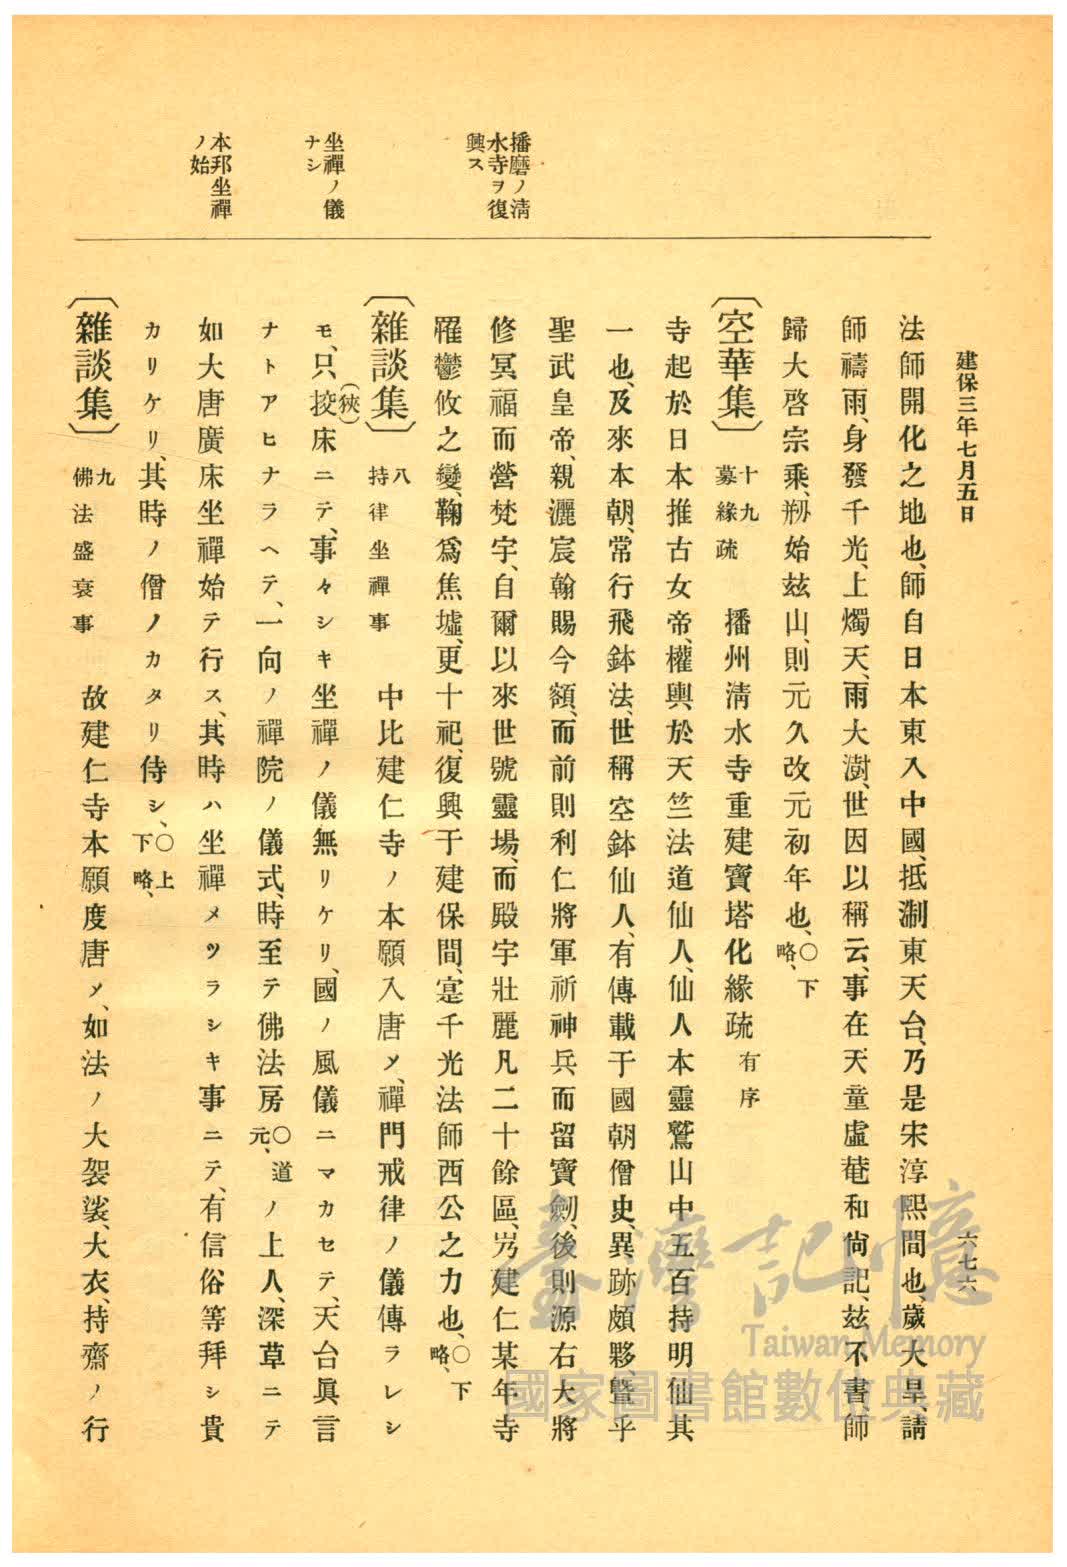 建保三年七月五日
六七六
播磨ノ淸
水寺ヲ復
興ス
坐禪ノ儀
ナシ
本邦坐禪
ノ始
法師開化之地也、師自日本東入中國、抵淛東天台、乃是宋淳熙間也、歲大旱、請
師禱雨、身發千光、上燭天、雨大澍、世因以稱云、事在天童虛菴和尙記、玆不書、師
歸大啓宗乘、剏始玆山、則元久改元初年也、〇下略、
〔空華集〕十九 募緣疏 播州淸水寺重建寶塔化緣疏有序
寺起於日本推古女帝、權輿於天竺法道仙人、仙人本靈鷲山中五百持明仙其
一也、及來本朝、常行飛鉢法、世稱空鉢仙人、有傳載于國朝僧史、異跡頗夥、曁乎
聖武皇帝、親灑宸翰賜今額、而前則利仁將軍祈神兵而留寶劍、後則源右大將
修冥福而營梵宇、自爾以來世號靈場、而殿宇壯麗凡二十餘區、屴建仁某年寺
罹鬱攸之變、鞠爲焦墟、更十祀、復興于建保間、寔千光法師西公之力也、〇下略、
〔雜談集〕八 持律坐禪事 中比建仁寺ノ本願入唐メ、禪門戒律ノ儀傳ラレシ
モ、只㧱(狹)床ニテ、事々シキ坐禪ノ儀無リケリ、國ノ風儀ニマカセテ、天台眞言
ナトアヒナラヘテ、一向ノ禪院ノ儀式、時至テ佛法房〇道元、ノ上人、深草ニテ
如大唐廣床坐禪始テ行ス、其時ハ坐禪メツラシキ事ニテ、有信俗等拜シ貴
カリケリ、其時ノ僧ノカタリ侍シ、〇上下略、
〔雜談集〕九 佛法盛衰事 故建仁寺本願度唐メ、如法ノ大袈裟、大衣、持齋ノ行
臺灣記憶
Taiwan Memory
國家圖書館數位典藏